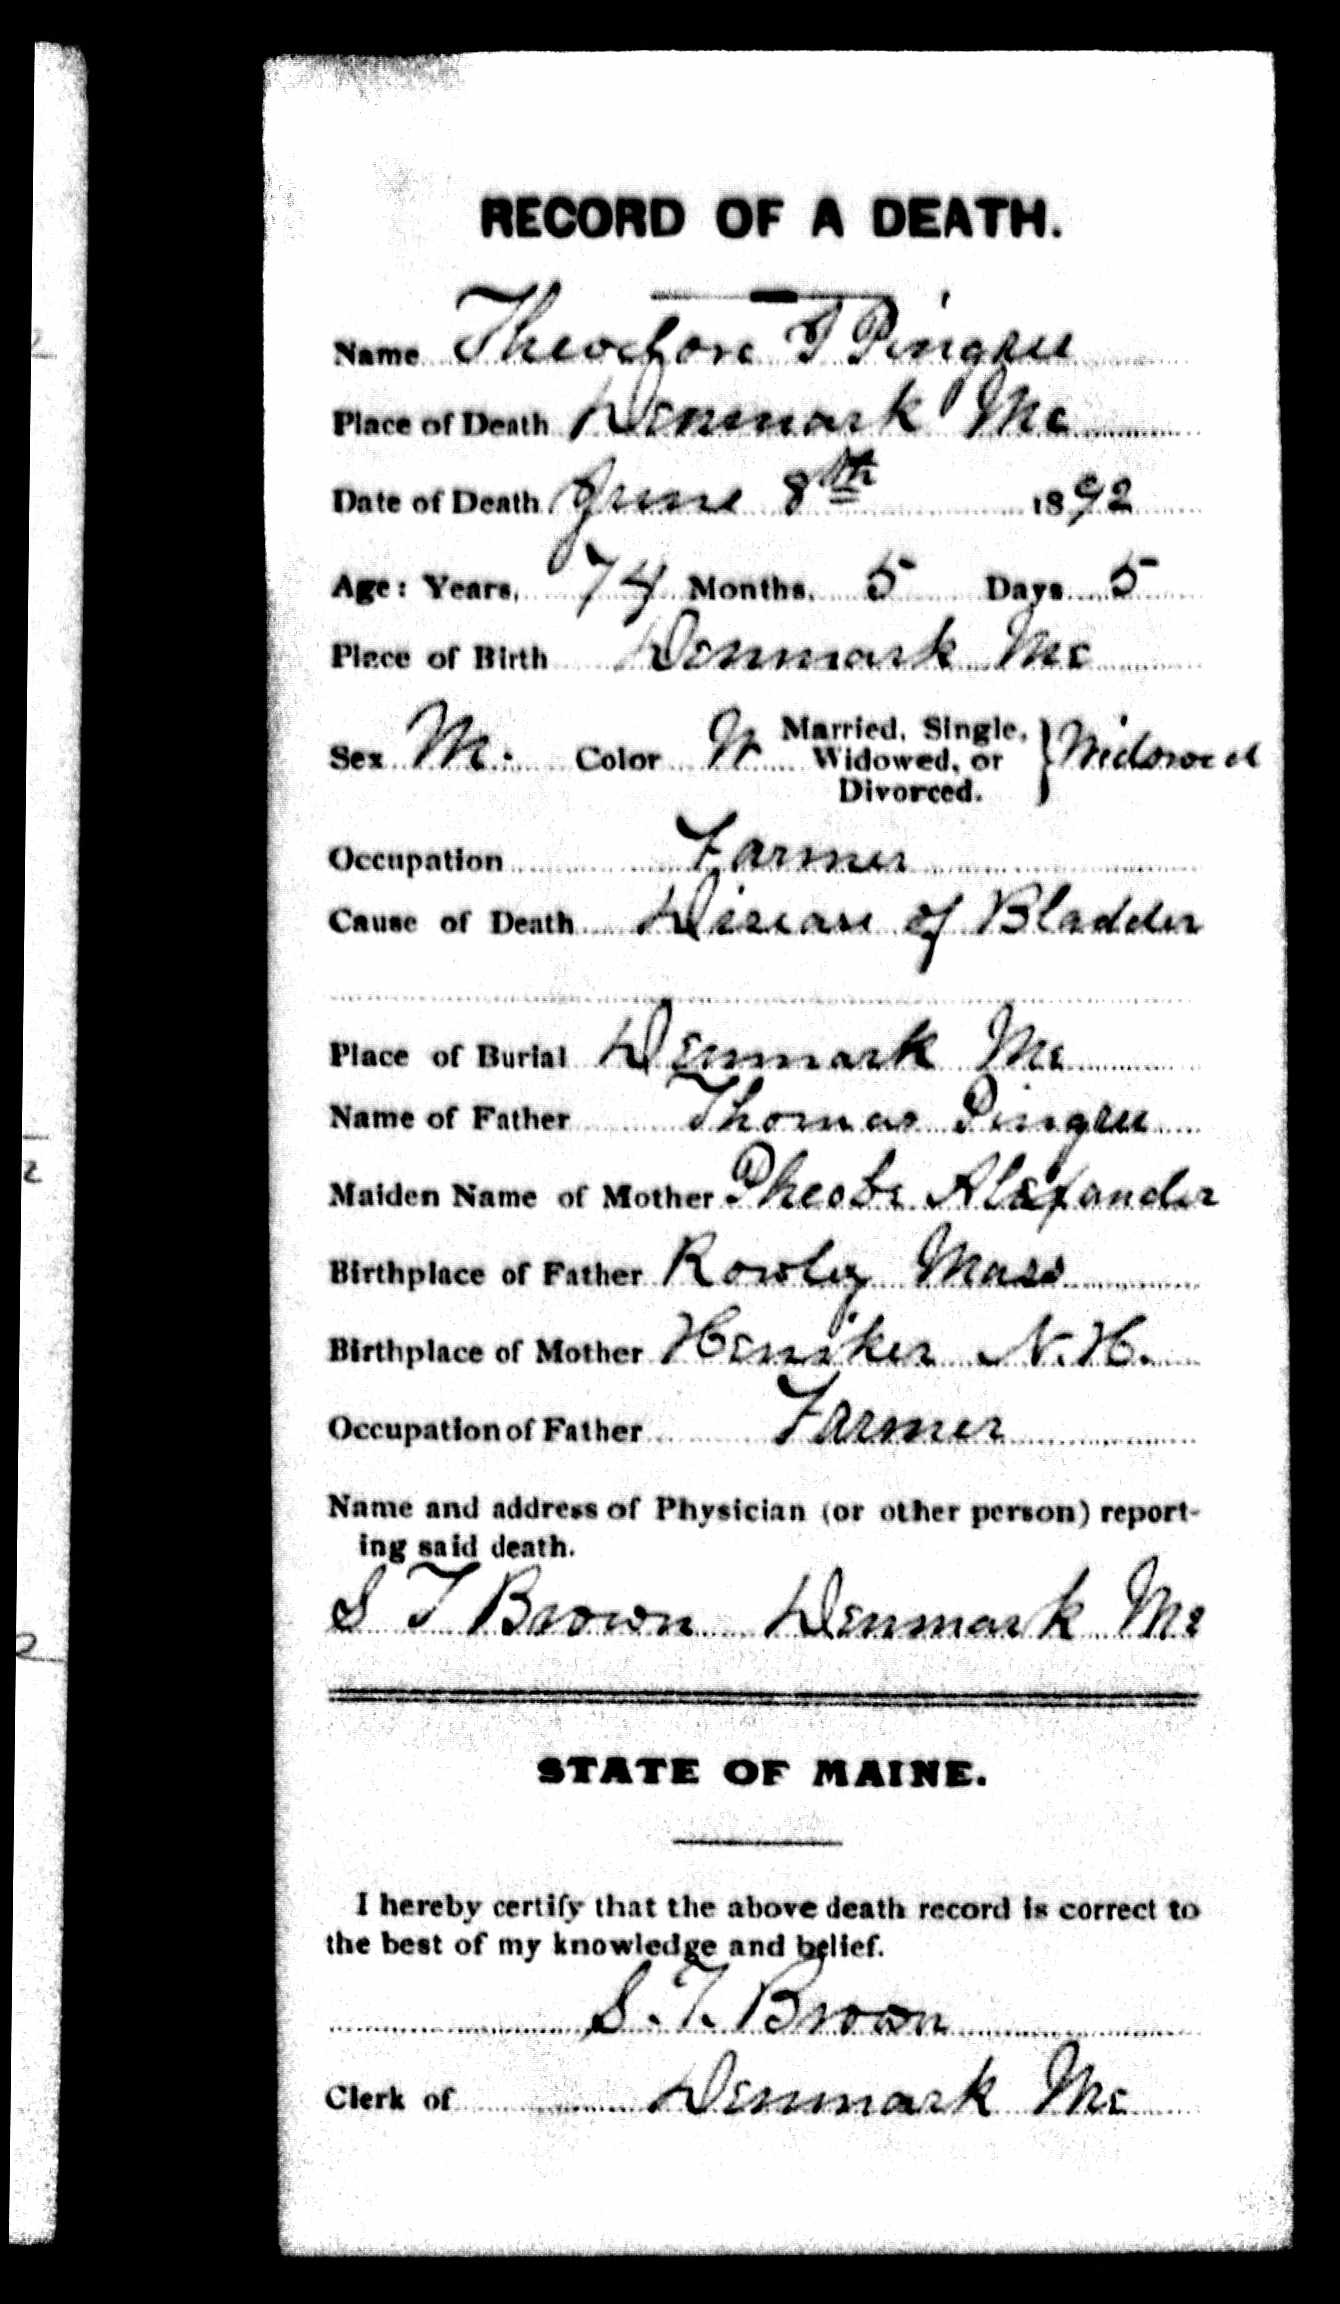 RECORD OF A DEATH.
Name Theodore T Pingree
Place of Death Denmark Me
Date of Death June 8th 1892
Age: Years, 74 Months, 5 Days 5
Place of Birth Denmark Me
Sex M. Color W Married, Single, Widowed, or Divorced. } Widowed
Occupation Farmer
Cause of Death Disease of Bladder
Place of Burial Denmark Me
Name of Father Thomas Pingree
Maiden Name of Mother Pheobe Alexander
Birthplace of Father Rowley Mass
Birthplace of Mother Heniker N.H.
Occupation of Father Farmer
Name and address of Physician (or other person) report-
ing said death.
S T Brown Denmark Me
STATE OF MAINE.
I hereby certify that the above death record is correct to
the best of my knowledge and belief.
S. T. Brown
Clerk of Denmark Me